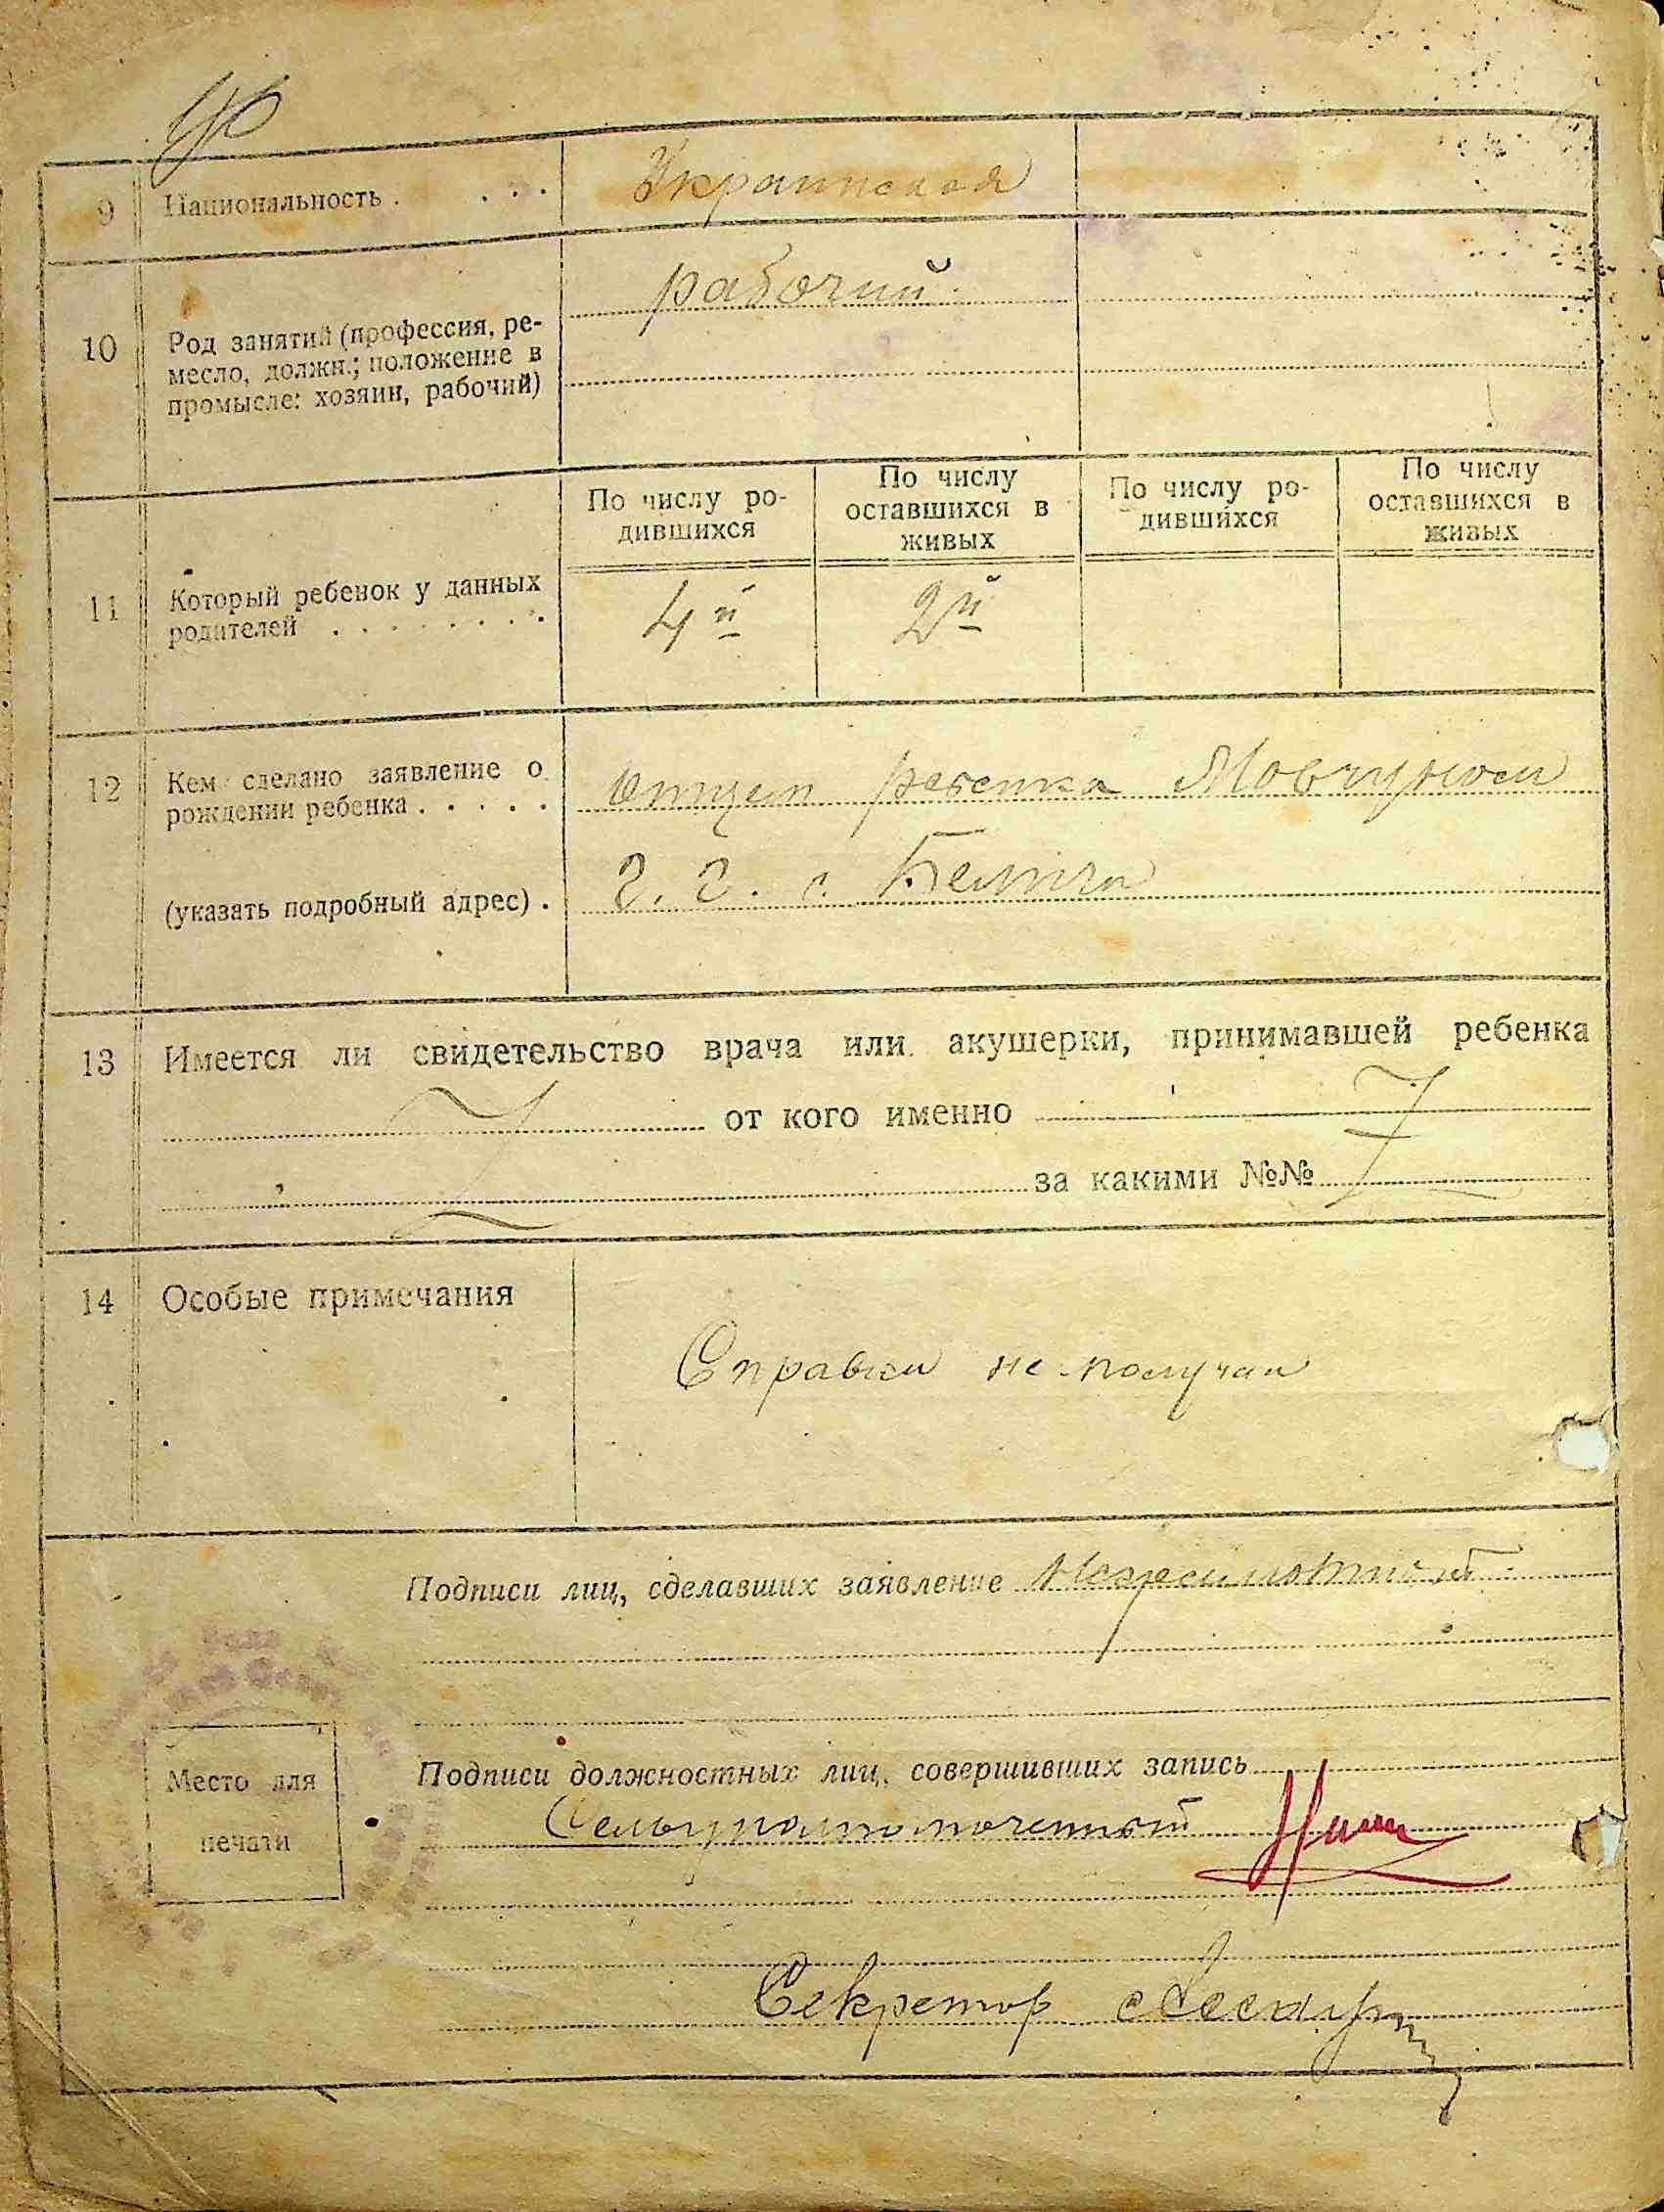 9 Национальность . . . . Украинская
рабочий
10 Род занятий (профессия, ре-
месло, должн.; положение в
промысле: хозяин, рабочий)
По числу ро-
дившихся
По числу
оставшихся в
живых
По числу ро-
дившихся
По числу
оставшихся в
живых
11 Который ребенок у данных
родителей . . . . . . . .
4й 2й
12 Кем сделано заявление о
рождении ребенка . . . . .
отцем ребенка Мовчуном
(указать подробный адрес) .
Г. Г. с.
13 Имеется ли свидетельство врача или акушерки, принимавшей ребенка
от кого именно
за какими №№
14 Особые примечания
Справки не получал
Подписи лиц, сделавших заявление Неграмотный
Подписи должностных лиц, совершивших запись
Сельуполномоченный
Место для
печати
Секретар